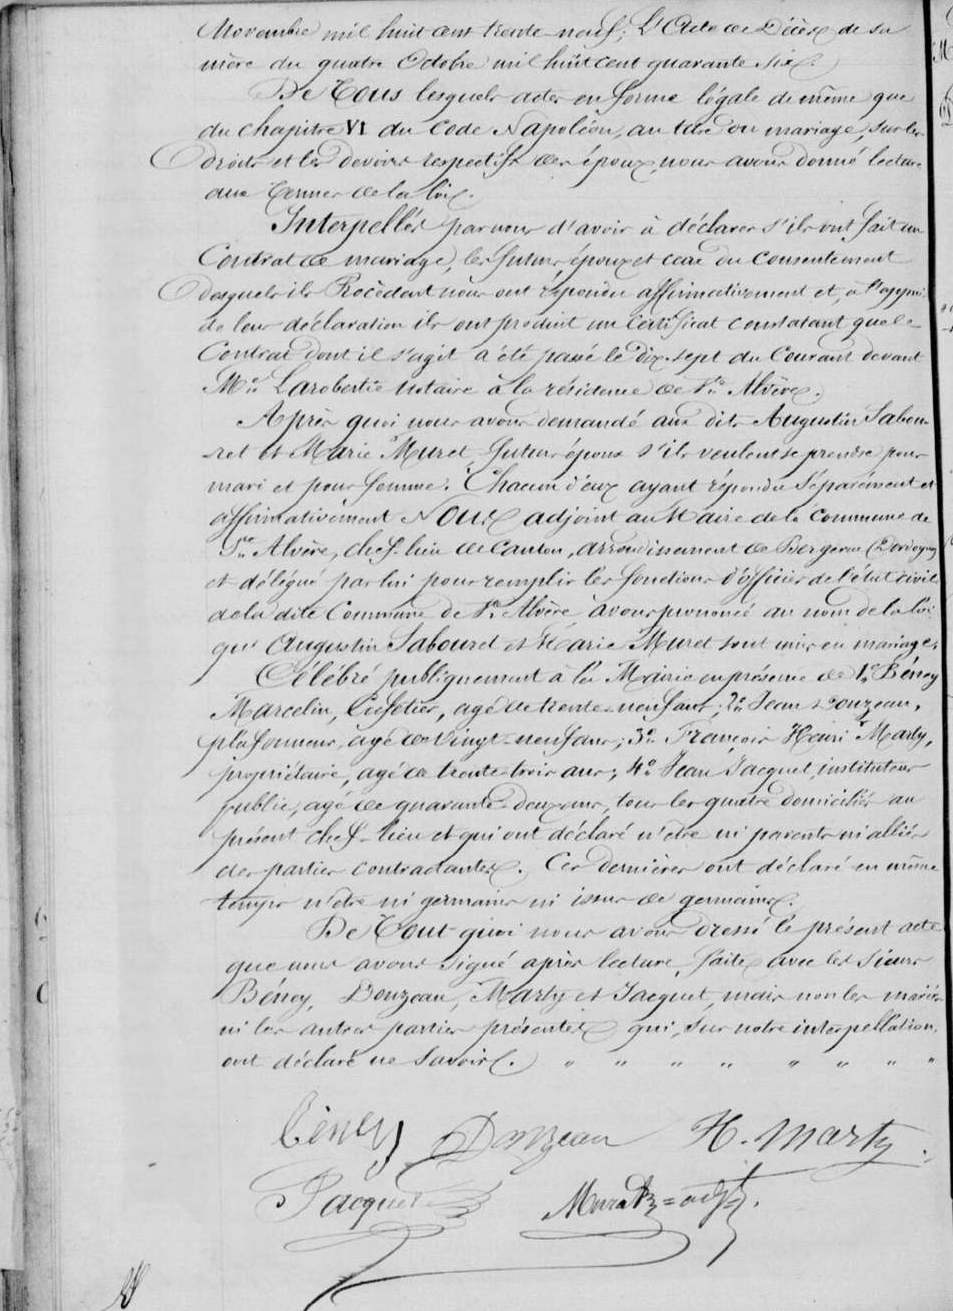 Novembre mil huit cent trente neuf; L'Acte de Décès de sa
mère du quatre Octobre mil huit cent quarante six.
De Tous lesquels actes en forme légale de même que
du chapitre VI du Code Napoléon, au titre du mariage, sur les
droits et les devoirs respectifs des époux, nous avons donné lecture
aux termes de la loi.
Interpellés par nous d'avoir à déclarer s'ils ont fait un
Contrat de mariage, les futurs époux et ceux du consentement
desquels ils Procèdent nous ont répondu affirmativement et, à l'appui
de leur déclaration ils ont produit un Certificat constatant que le
Contrat dont il s'agit a été passé le dix-sept du Courant devant
Me. Larobertie notaire à la résidence de Ste Alvère.
Après quoi nous avons demandé aux dits Augustin Sabou-
ret et Marie Muret futurs époux s'ils veulent se prendre pour
mari et pour femme. Chacun d'eux ayant répondu Séparément et
affirmativement NOUS adjoint au Maire de la Commune de
Ste Alvère, chef-lieu de Canton, arrondissement de Bergerac (Dordogne)
et délégué par lui pour remplir les fonctions d'officier de l'état civil
de la dite Commune de Ste Alvère, avons prononcé au nom de la loi
que Augustin Sabouret et Marie Muret sont unis en mariage.
Célébré publiquement à la Mairie en présence de 1° Béney
Marcelin, Cafetier, agé de trente-neuf ans; 2° Jean Donzeau,
plafonneur, agé de Vingt-neuf ans; 3° François Henri Marty,
propriétaire, agé de trente trois ans; 4° Jean Jacquet, instituteur
public, agé de quarante-deux ans, tous les quatre domiciliés au
présent chef-lieu et qui ont déclaré n'être ni parents ni alliés
des parties contractantes. Ces dernières ont déclaré en même
temps n'être ni germains ni issus de germains.
De Tout quoi nous avons dressé le présent acte
que nous avons signé après lecture faite avec les Sieurs
Béney, Donzeau, Marty et Jacquet, mais non les mariés
ni les autres parties présentes qui, sur notre interpellation,
ont déclaré ne Savoir. " " " " " " " "
Béney Donzeau H. Marty
Jacquet adjt.